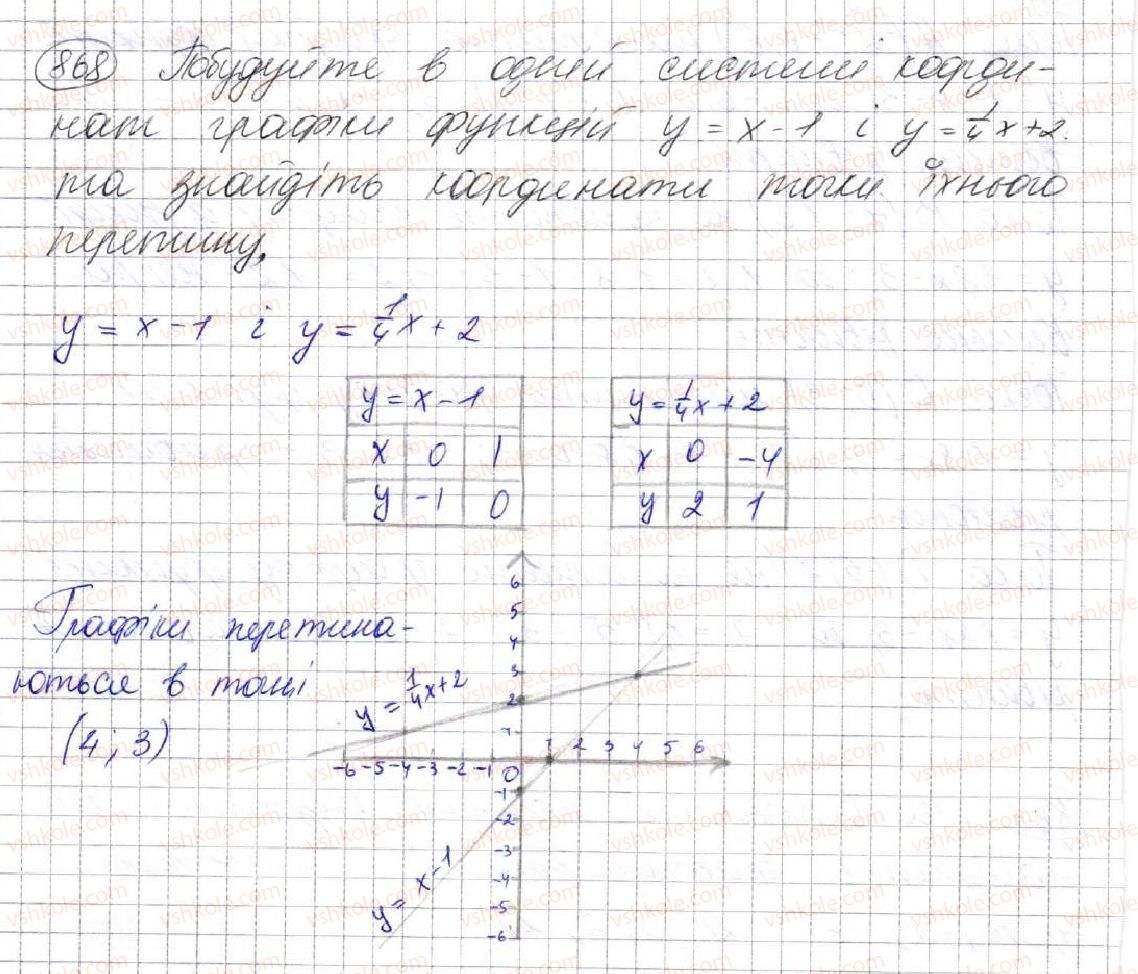 868 Побудуйте в одній системі коорди-
нат графіки функцій y = x - 1 і y = 1/4 x + 2.
та знайдіть координати точки їхнього
перетину.
y = x - 1 і y = 1/4 x + 2
y = x - 1
x 0 1
y -1 0
y = 1/4 x + 2
x 0 -4
y 2 1
Графіки перетина-
ються в точці
(4; 3)
y = 1/4 x + 2
y = x - 1
6
5
4
3
2
1
-6 -5 -4 -3 -2 -1 0 1 2 3 4 5 6
-1
-2
-3
-4
-5
-6
vshkole.com